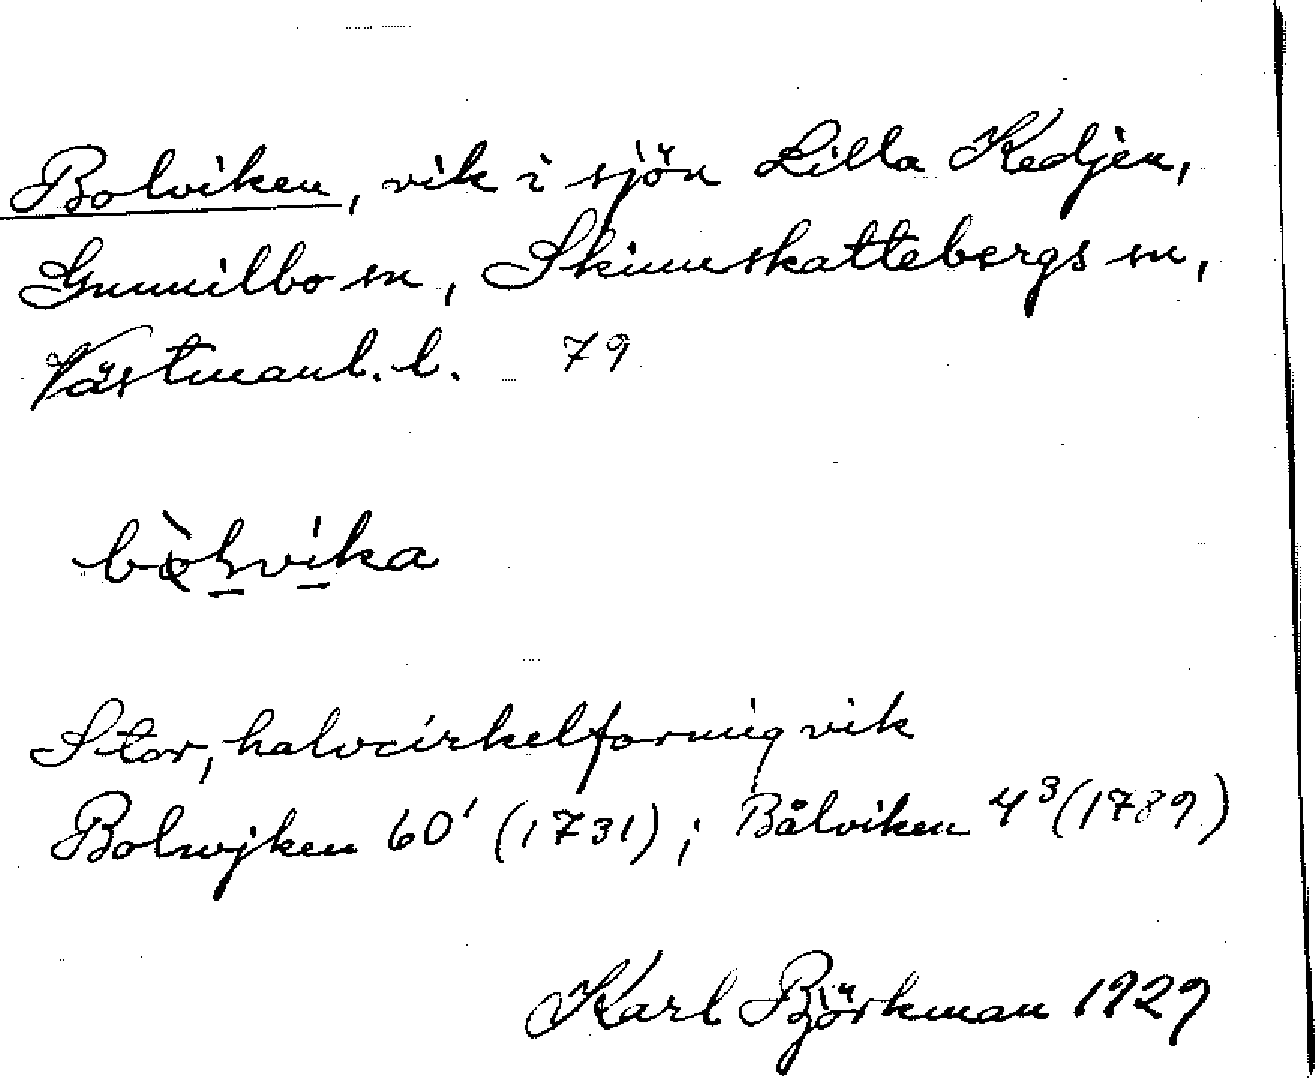 Bolviken, vik i sjön Lilla Kedjen,
Gunnilbo sn, Skinnskattebergs sn,
Västmanl. l. 79
bòlvika
Stor, halvcirkelformig vik
Bolwjken 60¹ (1731); Bålviken 4³ (1789)
Karl Björkman 1929